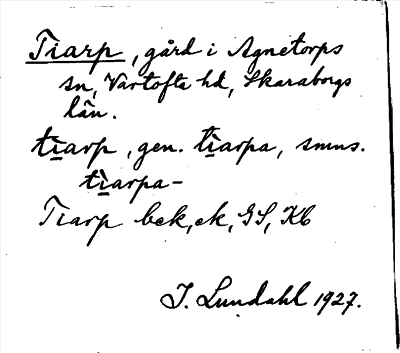 Tiarp, gård i Agnetorps
sn, Vartofta hd, Skaraborgs
län.
tiarp, gen. tiarpa, smns.
tiarpa-
Tiarp bek, ek, GS, Kb
I. Lundahl 1927.